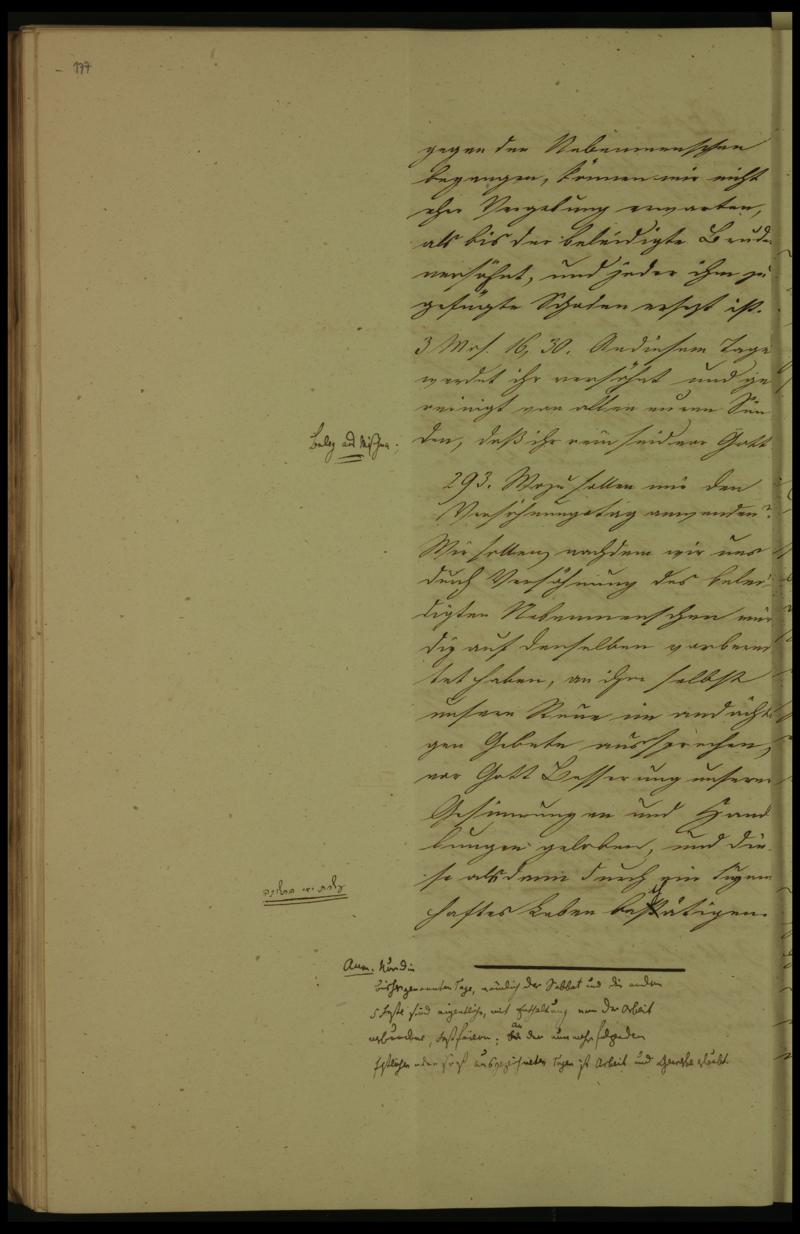 - 177
gegen den Nebenmenschen
begangen, können wir nicht
eher Vergebung erwarten,
als bis der beleidigte Bruder
versöhnt, und jeder ihm zu
gefügte Schaden ersetzt ist.
3 Mos. 16, 30. An diesem Tage
werdet ihr versöhnt und ge
reinigt von allen euren Sün
den, daß ihr rein seid vor Gott
Beleg aus Mischna.
293. Wozu sollen wir den
Versöhnungstag anwenden?
Wir sollen, nachdem wir uns
durch Versöhnung des belei
digten Nebenmenschen wür
dig auf denselben vorberei
tet haben, an ihm selbst
unsere Reue im andächti
gen Gebete aussprechen,
vor Gott Besserung unserer
Gesinnungen und Hand
lungen geloben, und die
se alsdann durch ein tugend
haftes Leben bestätigen.
Anm. Nur die
bisher genannten Tage, nämlich der Sabbat und die andern
5 Feste sind eigentliche, mit Enthaltung von der Arbeit
verbundne, Festfeiern; an den nunmehr folgenden
festlichen oder sonst ausgezeichneten Tagen ist Arbeit und Gewerbe erlaubt.